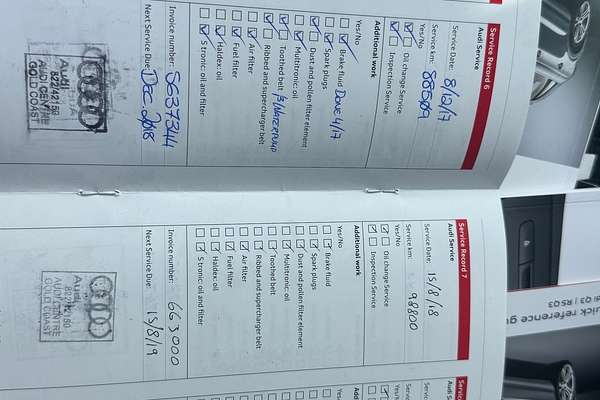 Service Record 6
Audi Service
Service Date: 8/12/17
Service km: 88509
Yes/No
Oil change Service
Inspection Service
Additional work
Yes/No
Brake fluid DONE 4/17
Spark plugs
Dust and pollen filter element
Multitronic: oil
Toothed belt
Ribbed and supercharger belt
Air filter
Fuel filter
Haldex: oil
S tronic: oil and filter
Invoice number: 5637344
Next Service Due: DEC 2018
Audi
82242150
AUDI CENTRE
GOLD COAST
Service Record 7
Audi Service
Service Date: 15/8/18
Service km: 98800
Yes/No
Oil change Service
Inspection Service
Additional work
Yes/No
Brake fluid
Spark plugs
Dust and pollen filter element
Multitronic: oil
Toothed belt
Ribbed and supercharger belt
Air filter
Fuel filter
Haldex: oil
S tronic: oil and filter
Invoice number: 663000
Next Service Due: 15/8/19
Audi
AUDI CENTRE
GOLD COAST
Q3 | RSQ3
reference